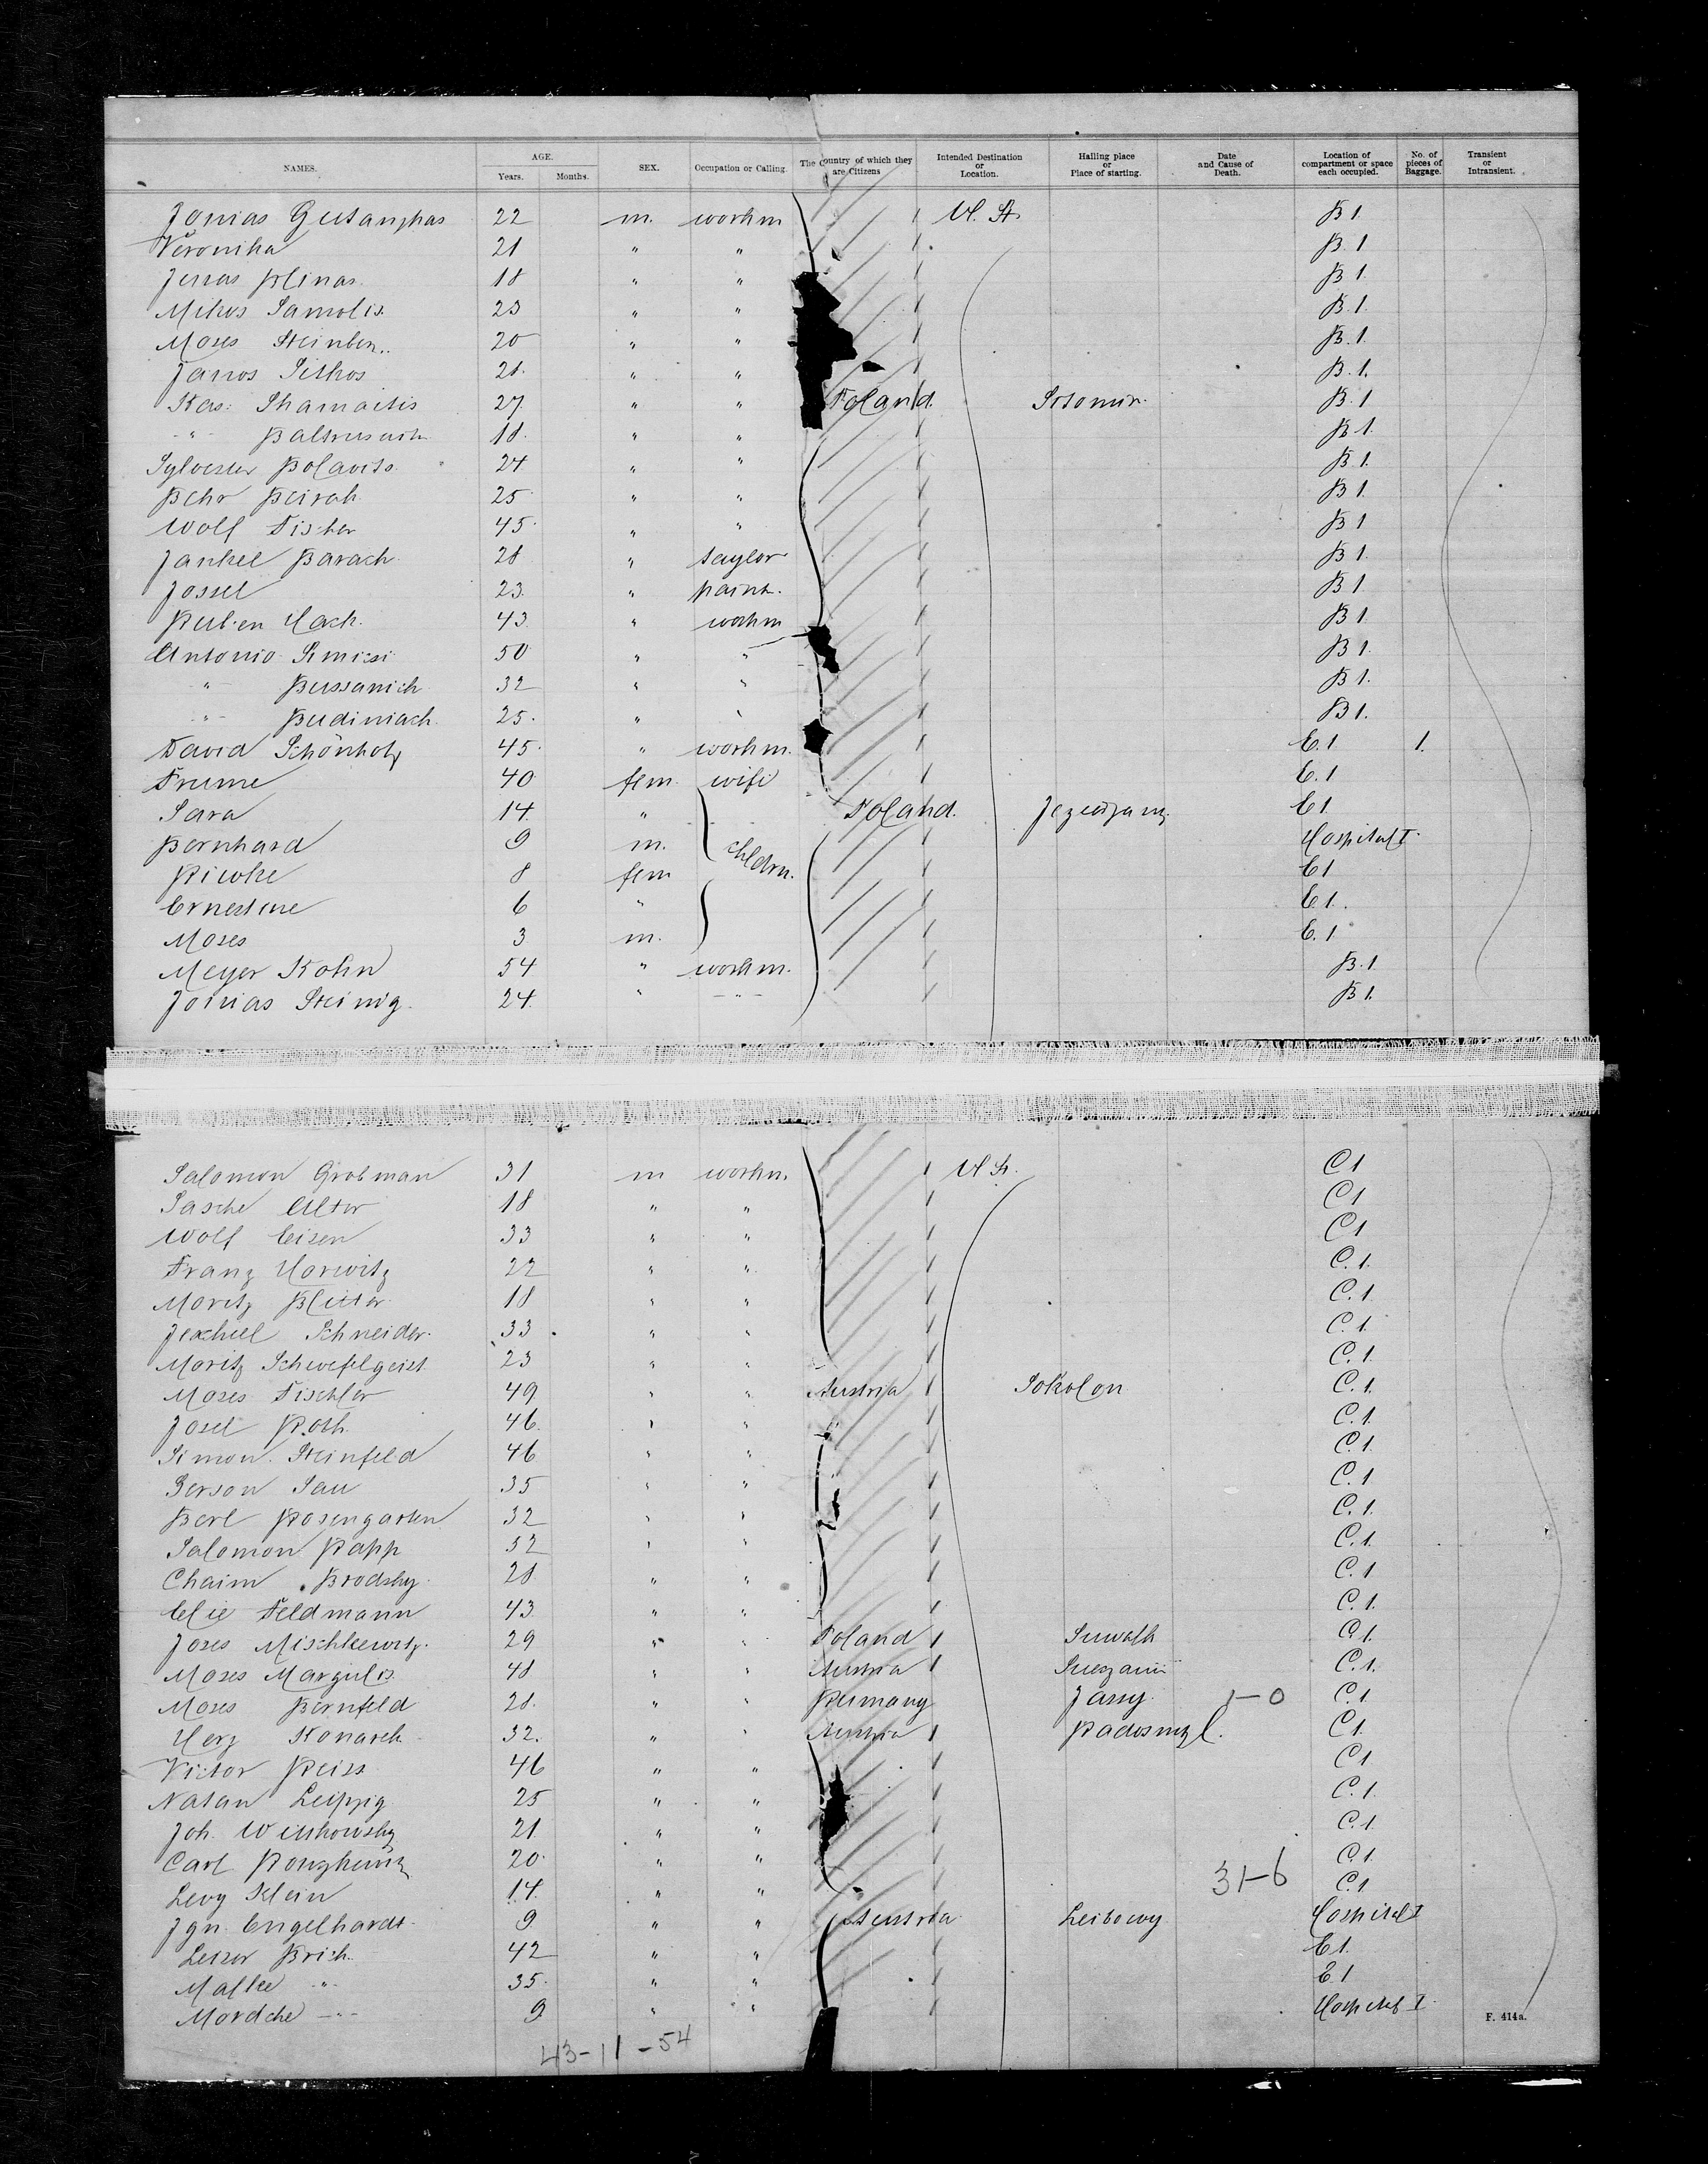 NAMES. AGE. Years. Months. SEX. Occupation or Calling. The Country of which they are Citizens Intended Destination or Location. Hailing place or Place of starting. Date and Cause of Death. Location of compartment or space each occupied. No. of pieces of Baggage. Transient or Intransient.
Jonias 22 m. workm U. St. B 1.
Veronika 21 " " B. 1
18 " " B 1.
Samolis 23 " " B. 1.
Moses 20 " " B. 1.
Janos 21. " " B. 1.
Kas: Shamaitis 27 " " Poland. B. 1
-"- 18. " " B 1.
Sylvester 24 " " B 1.
Behr 25 " " B 1.
Wolf Fischer 45. " " B 1
Jankel Barach 28 " taylor B 1.
Jossel 23. " paint. B 1
Ruben Hach. 43 " workm B 1
Antonio 50 " " B 1.
-"- Bussanich 32 " " B 1.
-"- Budiniach. 25. " " B 1.
David Schönholz 45. " workm. E. 1 1.
Frume 40 fem. wife E. 1
Sara 14. " Poland. E 1.
Bernhard 9 m. childrn. Hospital I.
Riwke 8 fem E 1
Ernestine 6 " E. 1.
Moses 3 m. E. 1
Meyer Kohn 54 " workm. B. 1
Joinias Steinig. 24. " -"- B 1.
Salomon Grobman 31 m workm. U. St. C 1
Sasche Alter 18 " " C 1
Wolf Eisen 33 " " C 1
Franz Horwitz 22 " " C. 1.
Moritz 18 " " C. 1.
Schneider. 33 " " C. 1.
Moritz Schwefelgeist 23 " " C. 1.
Moses Fischler 49 " " Austria Sokolon C. 1.
Josel Roth. 46. " " C. 1.
Simon Steinfeld 46 " " C. 1.
Gerson Sau 35 " " C. 1
Berl Rosengarten 32 " " C. 1.
Salomon Rapp 32 " " C. 1.
Chaim Brodsky 28 " " C. 1
Elie Feldmann 43 " " C. 1.
Joses Mischkewitz. 29 " " Poland Suwalk C. 1.
Moses Margulis 48 " " Austria C. 1.
Moses Bernfeld 28. " " Rumany Jassy. 1-0 C. 1
Herz Konarek 32. " " Austria C 1.
Victor Reiss 46 " " C 1
Natan Leipzig 25 " " C. 1.
Joh. Witkowsky 21 " " C. 1.
Carl 20. " " C. 1
Levy Klein 14. " " 31-6 C. 1
Ign. Engelhardt. 9 " " Austria Leibowy Hospital I
Leiser Brich. 42 " " E 1.
Malke -"- 35. " " E. 1
Mordche -"- 9. " " Hospital I.
F. 414a.
43-11-54